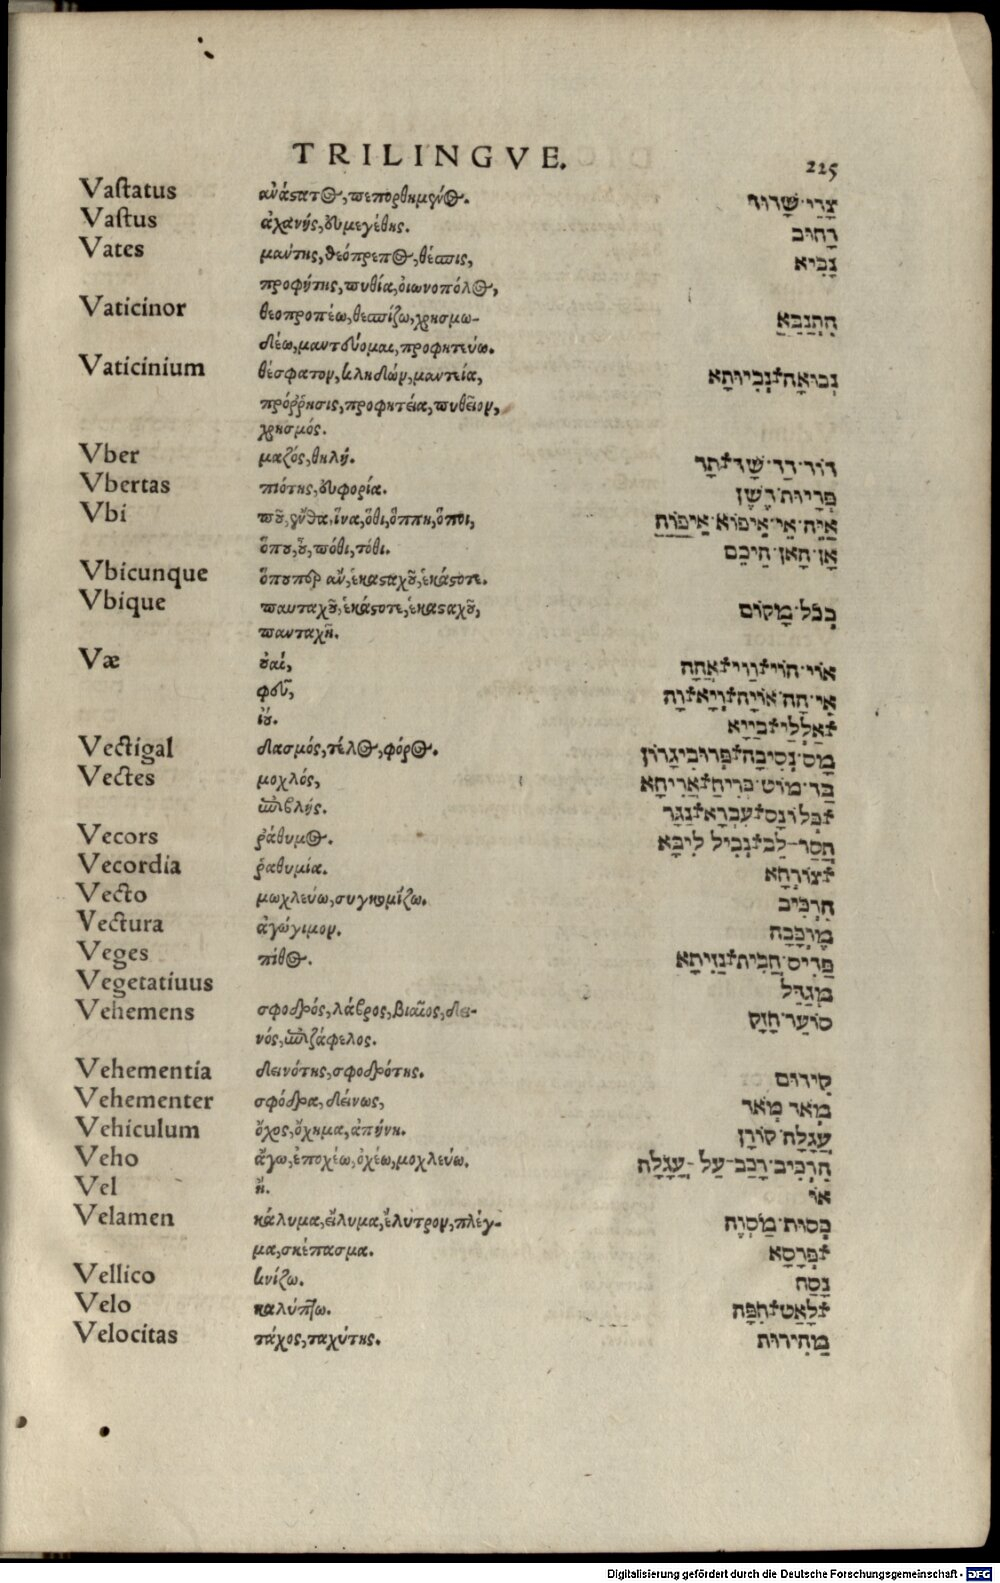 TRILINGVE. 225
Vastatus ἀνάστατος, πεπορθημένος. צָרַי שָׁדוּד
Vastus ἀχανής, εὐμεγέθης. רָחוּב
Vates μάντης, θεόπρεπος, θέσπις, נָבִיא
προφήτης, πυθία, οἰωνοπόλος,
Vaticinor θεοπροπέω, θεσπίζω, χρησμω- הִתְנַבֵּא
δέω, μαντεύομαι, προφητεύω.
Vaticinium θέσφατον, κληδών, μαντεία, נְבוּאָה נְבִיוּתָא
πρόῤῥησις, προφητέια, πυθεῖον,
χρησμός.
Vber μαζός, θηλή. דּוֹד דַּד שָׁד תָּד
Vbertas πιότης, εὐφορία. פְּרָיוּת דֶּשֶׁן
Vbi ποῦ, ἔνθα, ἵνα, ὅθι, ὅππη, ὅποι, אַיֵּה אֵי אֵיפוֹא אֵיפוֹה
ὅπου, οὗ, πόθι, τόθι. אָן הָאן הֵיכֵם
Vbicunque ὅπουπερ ἄν, ἑκασταχοῦ, ἑκάστοτε.
Vbique πανταχοῦ, ἑκάστοτε, ἑκασταχοῦ, בְּכֹל מָקוֹם
πανταχῆ.
Væ οὐαί, אוֹי הוֹי וַוי אֲהָהּ
φεῦ, אִי הָהּ אוֹיָה וָיָא וָה
ἰού. אַלְלַי בַּיָיא
Vectigal δασμός, τέλος, φόρος. מָס נְסִיבָה פְּרוּבִיגָרוֹן
Vectes μοχλός, בַּד מוֹט בְּרִיחַ אֲרִיחָא
ἐπιβλής. בְּלוֹנָס עִבְרָא נַגָּר
Vecors ῥάθυμος. חֲסַר־לֵב נְבִיל לִיבָּא
Vecordia ῥαθυμία. צוֹרְחָא
Vecto μωχλεύω, συγκομίζω. הִרְכִּיב
Vectura ἀγώγιμον. מֶרְכָּבָה
Veges πίθος. פַּרִיס חֲבִית גָּזִיתָא
Vegetatiuus מְגַדֵּל
Vehemens σφοδρός, λάβρος, βιαῖος, δει- סוֹעֵר חָזָק
νός, ἐπιζάφελος.
Vehementia δεινότης, σφοδρότης. קִידוּם
Vehementer σφόδρα, δείνως, מְאֹד מְאֹד
Vehiculum ὄχος, ὄχημα, ἀπήνη. עֲגָלָה קוֹרָן
Veho ἄγω, ἐποχέω, ὀχέω, μοχλεύω. הִרְכִּיב רָכַב־עַל־עֲגָלָה
Vel ἤ. אוֹ
Velamen κάλυμα, εἴλυμα, ἔλυτρον, πλέγ- כְּסוּת מַסְוֶה
μα, σκέπασμα. פְּרָסָא
Vellico κνίζω. נָסַח
Velo καλύπτω. לָאַט חִפָּה
Velocitas τάχος, ταχύτης. מְהִירוּת
Digitalisierung gefördert durch die Deutsche Forschungsgemeinschaft - DFG